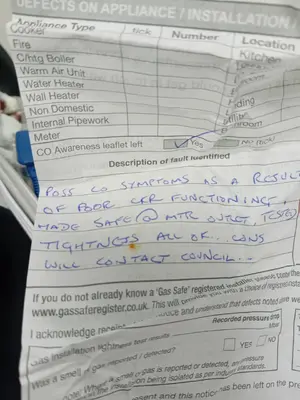 DEFECTS ON APPLIANCE / INSTALLATION
Appliance Type tick Number Location
Cooker Kitchen
Fire
C/htg Boiler
Warm Air Unit
Water Heater
Wall Heater
Non Domestic
Internal Pipework
Meter
CO Awareness leaflet left Yes No
Description of fault identified
POSS CO SYMPTOMS AS A RESULT
OF POOR CKR FUNCTIONING,
MADE SAFE @ MTR OUTLET, TESTED
TIGHTNESS ALL OF... CONS
WILL CONTACT COUNCIL...
If you do not already know a 'Gas Safe' registered
www.gassaferegister.co.uk. This will
I acknowledge
and understand that defects noted are
Recorded pressure
Gas installation tightness test results
YES NO
Was a smell of gas reported / detected?
Note: Where a smell of gas is reported or detected,
the installation being isolated as per
present and this notice has been left on the